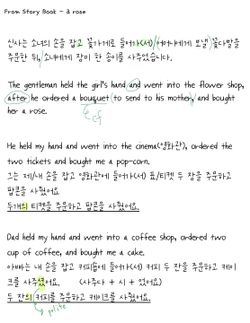 From Story Book - a rose
신사는 소녀의 손을 잡고 꽃가게로 들어가(서)/어머니에게 보낼 꽃다발을
주문한 뒤, 소녀에게 장미 한 송이를 사주었습니다.
The gentleman held the girl's hand and went into the flower shop,
after he ordered a bouquet to send to his mother, and bought
her a rose.
He held my hand and went into the cinema(영화관), ordered the
two tickets and bought me a pop-corn.
그는 제/내 손을 잡고 영화관에 들어가(서) 표/티켓 두 장을 주문하고
팝콘을 사줬어요.
두개의 티켓을 주문하고 팝콘을 사줬어요.
Dad held my hand and went into a coffee shop, ordered two
cup of coffee, and bought me a cake.
아빠는 내 손을 잡고 커피숍에 들어가(서) 커피 두 잔을 주문하고 케이
크를 사주셨어요. (사주다 + 시 + 었어요)
두 잔의 커피를 주문하고 케이크를 사줬어요.
polite